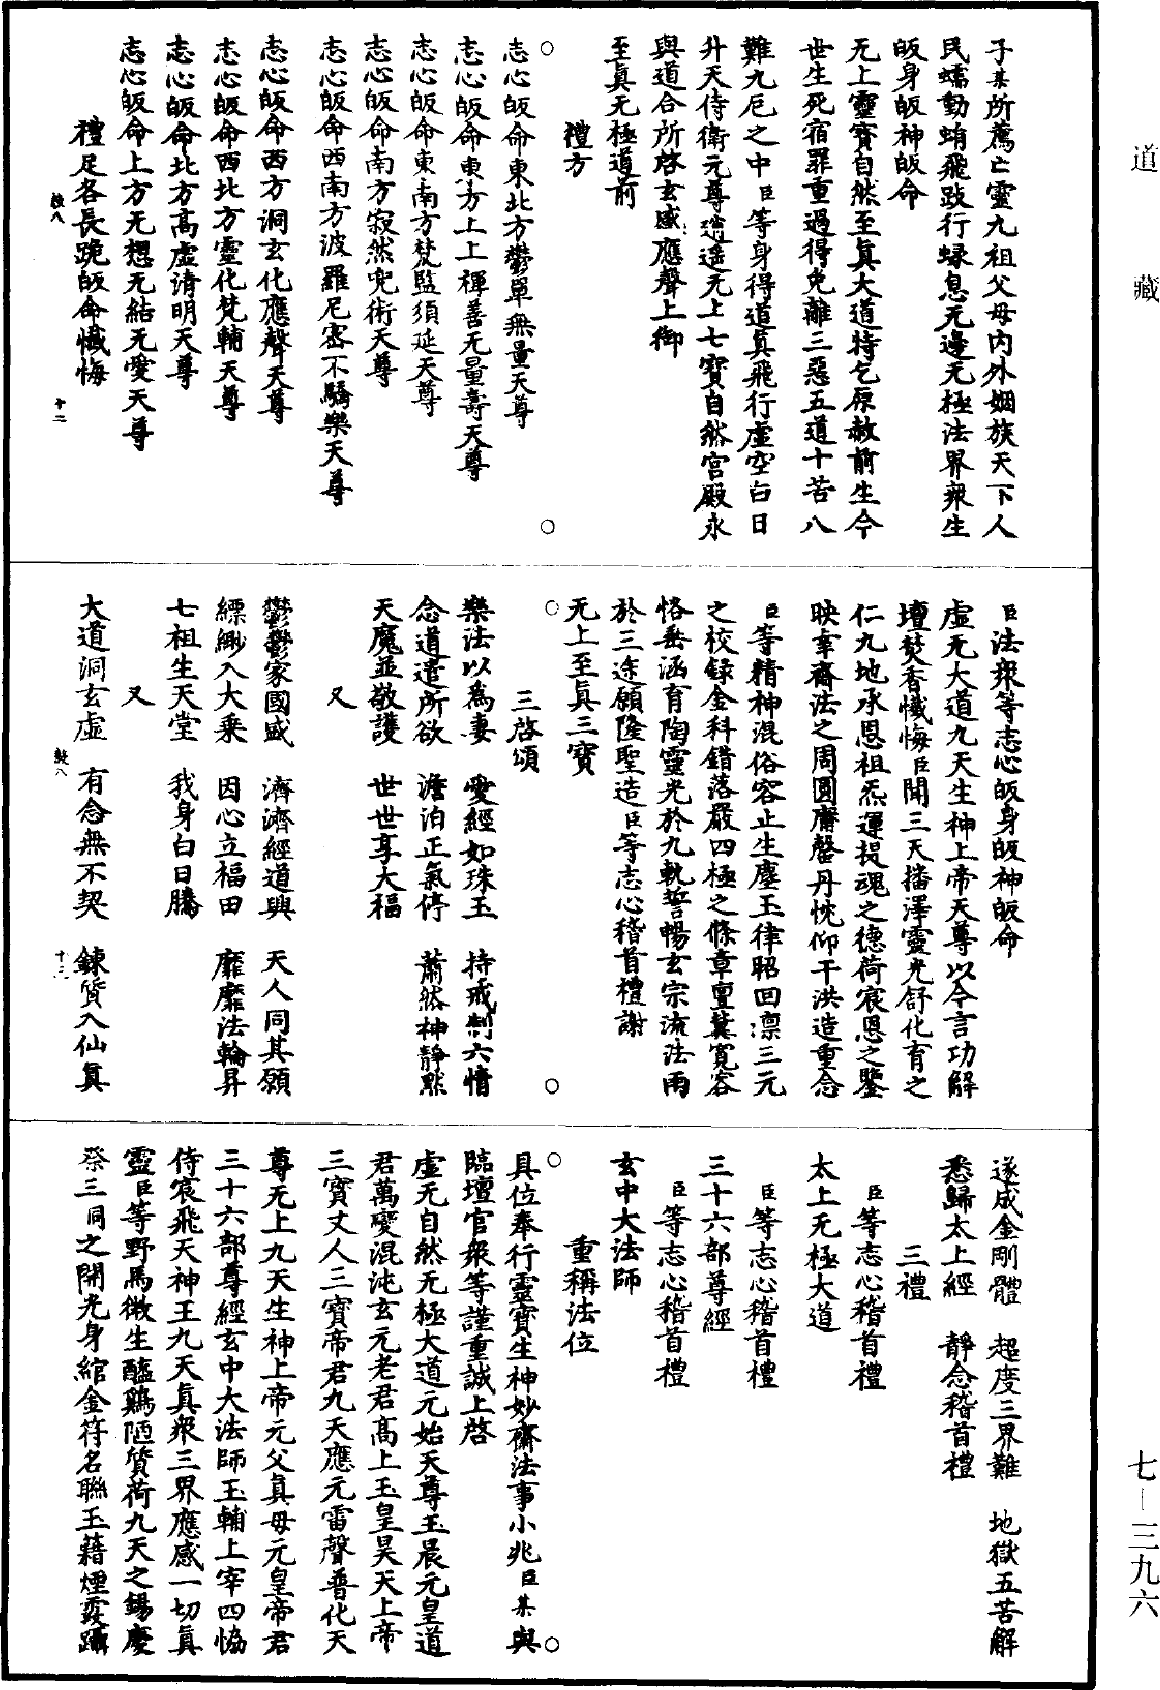 道藏
七—三九六
子某所薦亡靈九祖父母內外姻族天下人
民蠕動蛸飛跂行蜎息无邊无極法界衆生
皈身皈神皈命
无上靈寶自然至眞大道特乞原赦前生今
世生死宿罪重過得免離三惡五道十苦八
難九厄之中臣等身得道眞飛行虛空白日
升天侍衛元尊逍遙无上七寶自然宮殿永
與道合所啓玄感應聲上御
至眞无極道前
禮方
志心皈命東北方鬱單無量天尊
志心皈命東方上上禪善无量壽天尊
志心皈命東南方梵監須延天尊
志心皈命南方寂然兜術天尊
志心皈命西南方波羅尼密不驕樂天尊
志心皈命西方洞玄化應聲天尊
志心皈命西北方靈化梵輔天尊
志心皈命北方高虛清明天尊
志心皈命上方无想无結无愛天尊
禮足各長跪皈命懺悔
十二
臣法衆等志心皈身皈神皈命
虛无大道九天生神上帝天尊以今言功解
壇焚香懺悔臣聞三天播澤靈光舒化育之
仁九地承恩祖炁運提魂之德荷宸恩之鑒
映幸齋法之周圓膺罄丹忱仰干洪造重念
臣等精神混俗容止生塵玉律昭回凛三元
之校録金科錯落嚴四極之條章亶冀寬容
恪垂涵育陶靈光於九軌誓暢玄宗流法雨
於三途願隆聖造臣等志心稽首禮謝
无上至眞三寶
三啓頌
樂法以爲妻　愛經如珠玉　持戒制六情
念道遣所欲　澹泊正氣停　蕭然神靜默
天魔並敬護　世世享大福
又
鬱鬱家國盛　濟濟經道興　天人同其願
縹緲入大乘　因心立福田　靡靡法輪昇
七祖生天堂　我身白日騰
又
大道洞玄虛　有念無不契　鍊質入仙眞
十三
遂成金剛體　超度三界難　地獄五苦解
悉歸太上經　靜念稽首禮
三禮
臣等志心稽首禮
太上无極大道
臣等志心稽首禮
三十六部尊經
臣等志心稽首禮
玄中大法師
重稱法位
具位奉行靈寶生神妙齋法事小兆臣某與
臨壇官衆等謹重誠上啓
虛无自然无極大道元始天尊玉晨元皇道
君萬變混沌玄元老君高上玉皇昊天上帝
三寶丈人三寶帝君九天應元雷聲普化天
尊无上九天生神上帝元父眞母元皇帝君
三十六部尊經玄中大法師玉輔上宰四恊
侍宸飛天神王九天眞衆三界應感一切眞
靈臣等野馬微生醯鷄陋質荷九天之錫慶
祭三同之開光身綰金符名聯玉籍煙霞躡